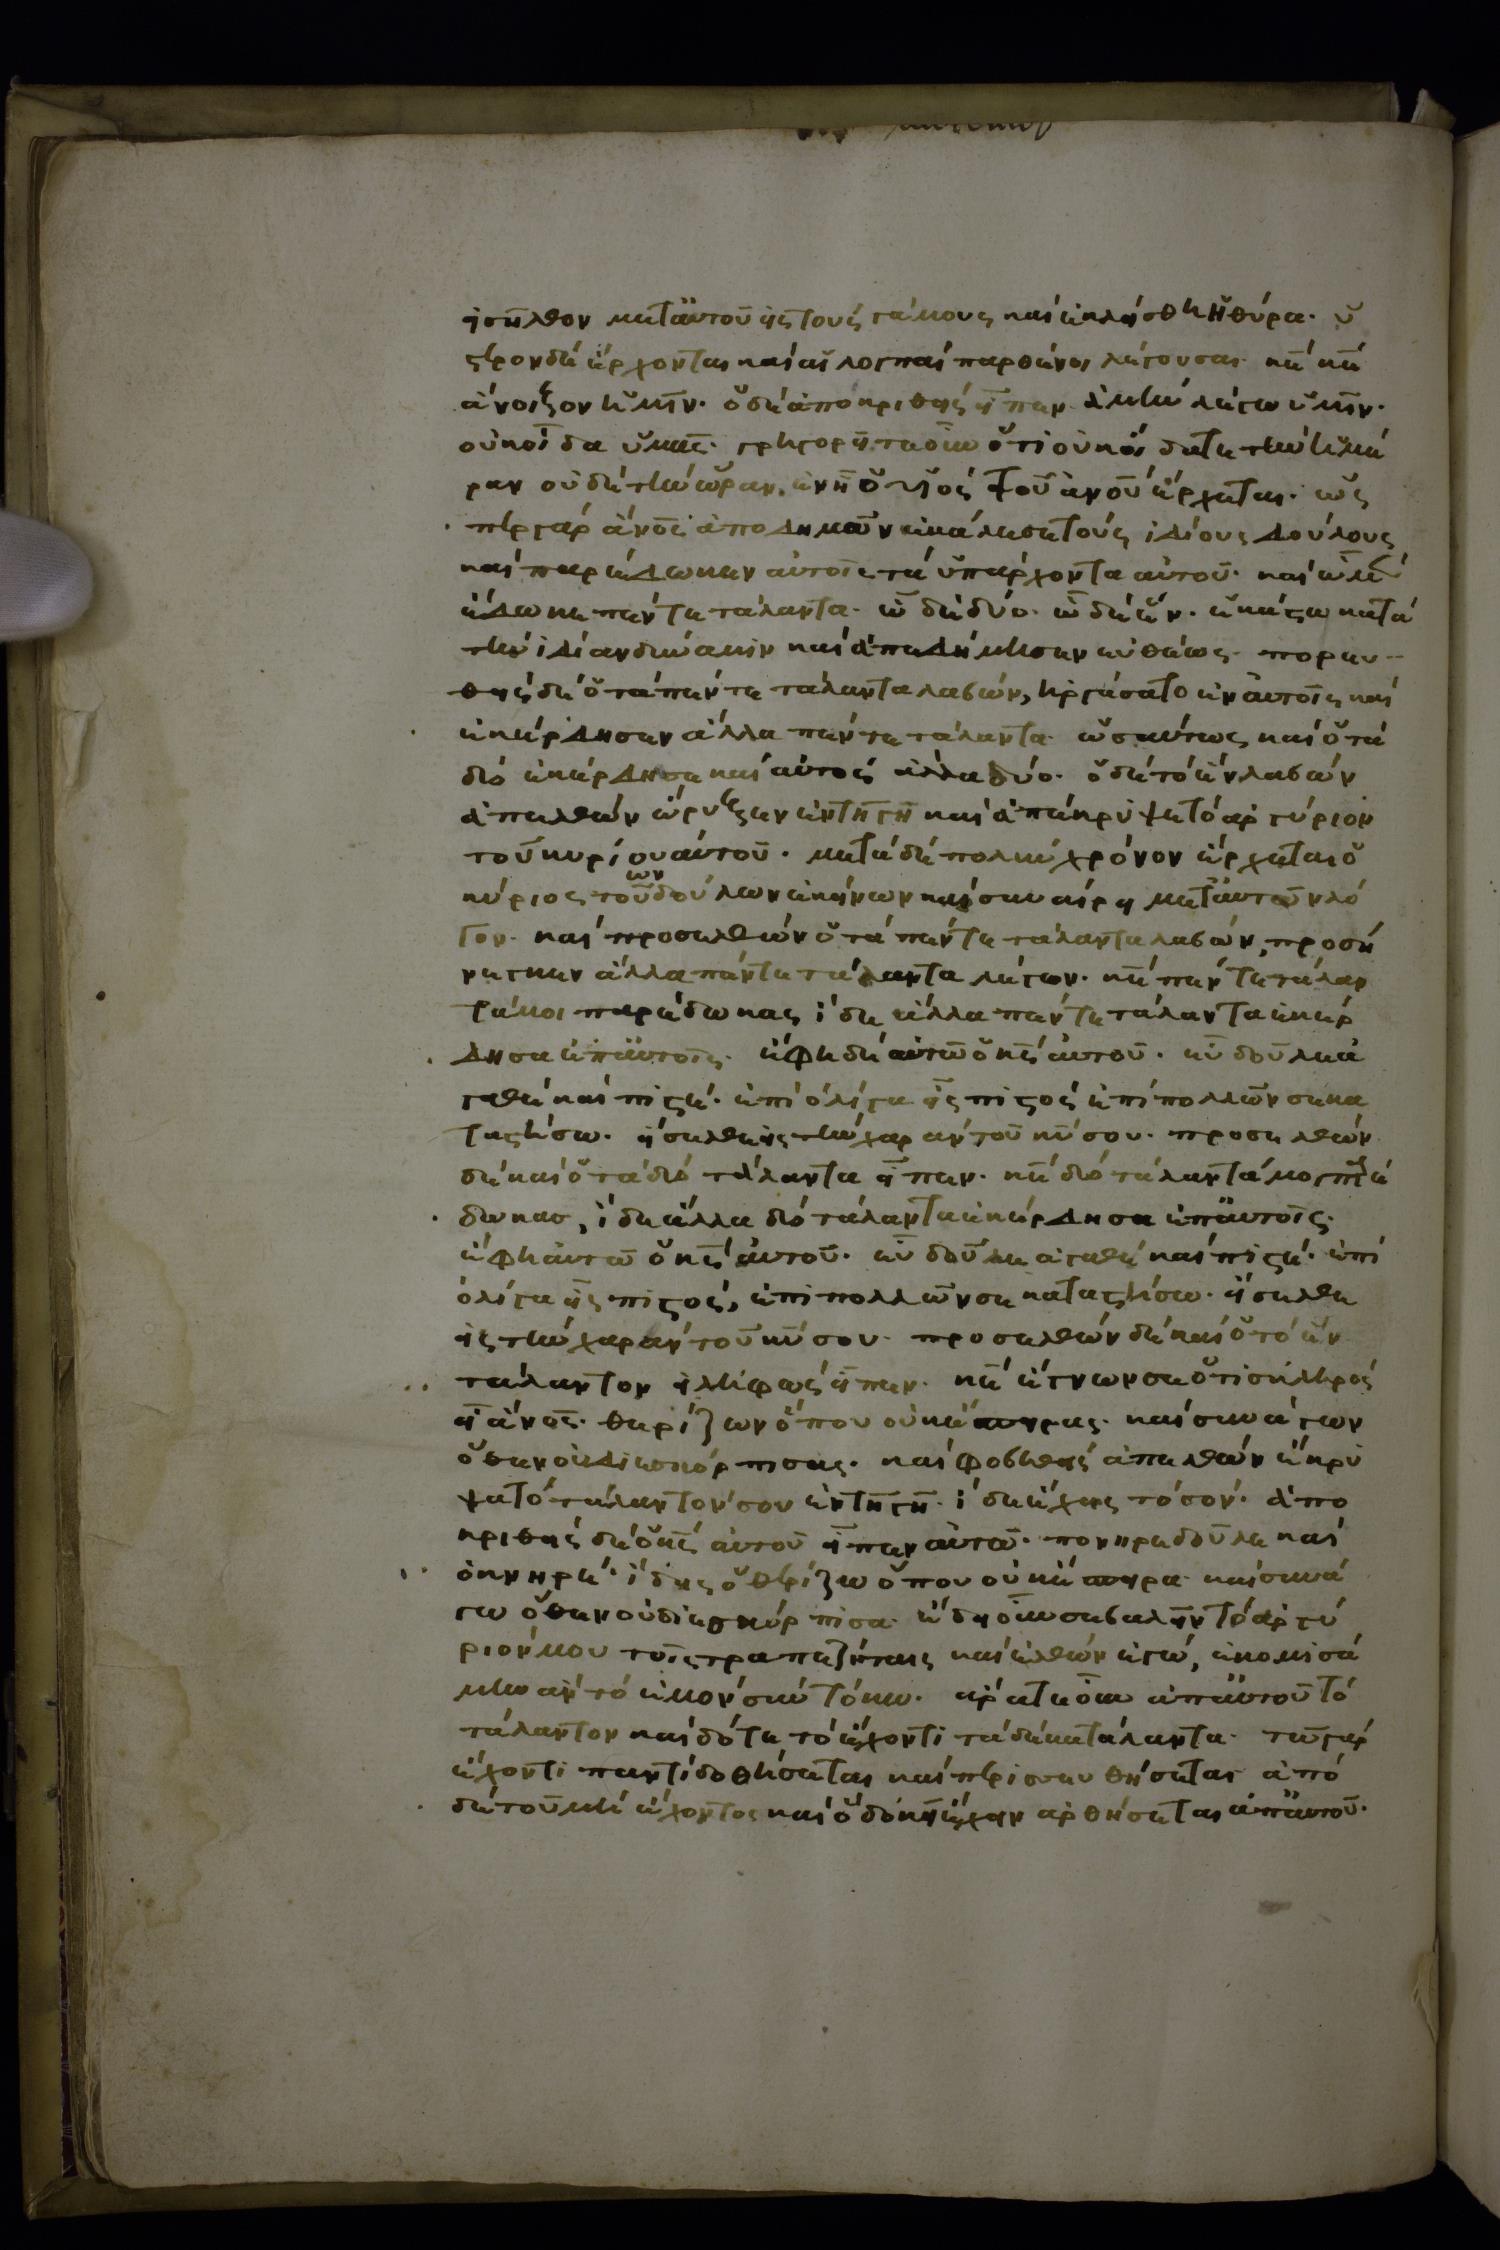 εἰσῆλθον μετ᾽ αὐτοῦ εἰς τοὺς γάμους καὶ ἐκλείσθη ἡ θύρα· ὕ
στερον δὲ ἔρχονται καὶ αἱ λοιπαὶ παρθένοι λέγουσαι· κε κε
ἄνοιξον ἡμῖν· ὁ δὲ ἀποκριθεὶς εἶπεν· ἀμὴν λέγω ὑμῖν·
οὐκ οἶδα ὑμᾶς· γρηγορεῖται οὖν ὅτι οὐκ οἴδατε τὴν ἡμέ
ραν οὐδὲ τὴν ὥραν, ἐν ᾗ ὁ υἱὸς τοῦ ανου ἔρχεται· ὥς
περ γὰρ ανος ἀποδημῶν ἐκάλεσε τοὺς ἰδίους δούλους
καὶ παρέδωκεν αὐτοῖς τὰ ὑπάρχοντα αὐτοῦ· καὶ ᾧ μὲν
ἔδωκε πέντε τάλαντα· ᾧ δὲ δύο· ᾧ δὲ ἕν· ἑκάστω κατὰ
τὴν ἰδίαν δύναμιν καὶ ἀπεδήμησεν εὐθέως· πορευ
θεὶς δὲ ὁ τὰ πέντε τάλαντα λαβών, ἠργάσατο ἐν αὐτοῖς καὶ
ἐκέρδησεν ἄλλα πέντε τάλαντα· ὡσαύτως καὶ ὁ τὰ
διό ἐκέρδησε καὶ αὐτὸς ἄλλα δύο· ὁ δὲ τὸ ἓν λαβὼν
ἀπελθὼν ὤρυξεν ἐν τῆ γῆ καὶ ἀπέκρυψε τὸ ἀργύριον
τοῦ κυρίου αὐτοῦ· μετὰ δὲ πολὺν χρόνον ἔρχεται ὁ
κύριος τοῦων δούλων ἐκείνων καὶ συναίρει μετ᾽ αὐτῶν λό
γον· καὶ προσελθὼν ὁ τὰ πέντε τάλαντα λαβών, προσή
νεγκεν ἄλλα πέντε τάλαντα λέγων· κε πέντε τάλαν
τά μοι παρέδωκας ἴδε ἄλλα πέντε τάλαντα ἐκέρ
δησα ἐπ᾽ αὐτοῖς· ἔφη δὲ αὐτῶ ὁ κς αὐτοῦ· εὖ δοῦλε ἀ
γαθὲ καὶ πιστέ· ἐπὶ ὀλίγα ἦς πιστὸς ἐπὶ πολλῶν σε κα
ταστήσω· εἴσελθε εἰς τὴν χαρὰν τοῦ κυ σου· προσελθὼν
δὲ καὶ ὁ τὰ διὸ τάλαντα εἶπεν· κε διὸ τάλαντά μοι παρέ
δωκας, ἴδε ἄλλα διὸ τάλαντα ἐκέρδησα ἐπ᾽ αὐτοῖς·
ἔφη αὐτῶ ὁ κς αὐτοῦ· εὖ δοῦλε ἀγαθὲ καὶ πιστέ· ἐπὶ
ὀλίγα ἦς πιστός, ἐπὶ πολλῶν σε καταστήσω· εἴσελθε
εἰς τὴν χαρὰν τοῦ κυ σου· προσελθὼν δὲ καὶ ὁ τὸ ἓν
τάλαντον εἰληφὼς εἶπεν· κε ἔγνων σε ὅτι σκληρὸς
εἶ ανος· θερίζων ὅπου οὐκ ἔσπειρας· καὶ συνάγων
ὅθεν οὐ διεσκόρπισας· καὶ φοβηθεὶς ἀπελθὼν ἔκρυ
ψα τὸ τάλαντόν σου ἐν τῆ γῆ· ἴδε ἔχεις τὸ σόν· ἀπο
κριθεὶς δὲ ὁ κς αὐτοῦ εἶπεν αὐτῶ· πονηρὲ δοῦλε καὶ
ὀκνηρέ· ἴδεις ὁ θερίζω ὅπου οὐκ ἔσπειρα· καὶ συνά
γω ὅθεν οὐ διεσκόρπισα· ἔδει οὖν σε βαλεῖν τὸ ἀργύ
ριόν μου τοῖς τραπεζίταις καὶ ἐλθὼν ἐγώ, ἐκομισά
μην ἂν τὸ ἐμὸν σὺν τόκω· ἄρατε οὖν ἀπ᾽ αὐτοῦ τὸ
τάλαντον καὶ δότε τὸ ἔχοντι τὰ δέκα τάλαντα· τῶ γὰρ
ἔχοντι παντὶ δοθήσεται καὶ περισσευθήσεται ἀπὸ
δὲ τοῦ μὴ ἔχοντος καὶ ὁ δοκεῖ ἔχειν ἀρθήσεται ἀπ᾽ αὐτοῦ·